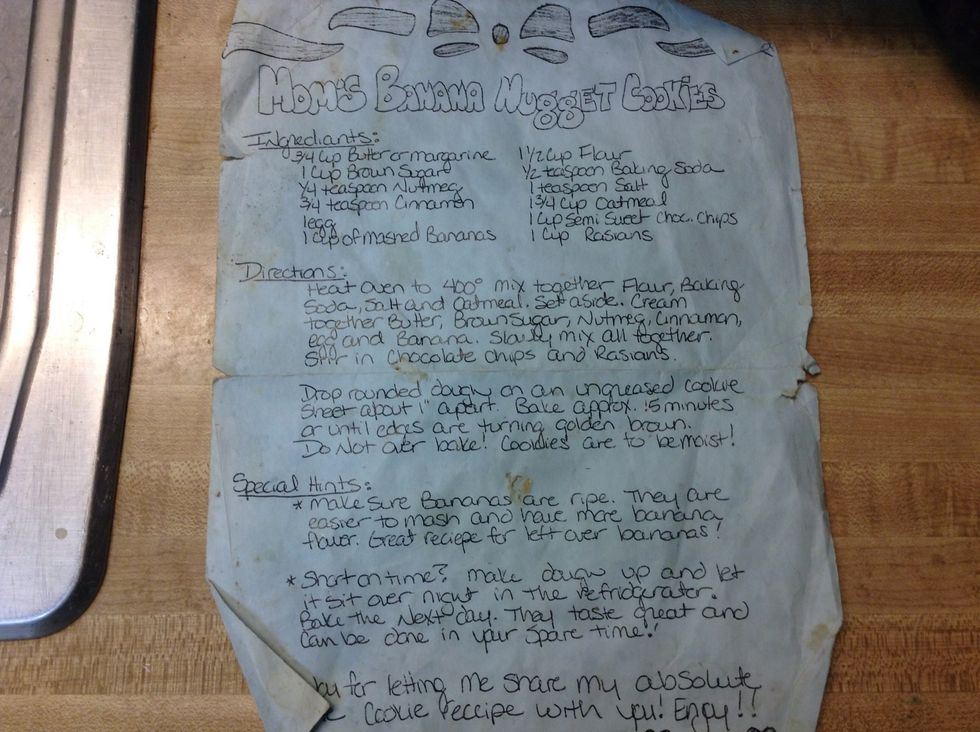 Mom's Banana Nugget Cookies
Ingrediants:
3/4 Cup Butter or margarine
1 Cup Brown Sugar
1/4 teaspoon Nutmeg
3/4 teaspoon Cinnamon
1 egg
1 Cup of Mashed Bananas
1 1/2 Cup Flour
1/2 teaspoon Baking Soda
1 teaspoon Salt
1 3/4 Cup Oatmeal
1 Cup Semi Sweet Choc. Chips
1 Cup Rasians
Directions:
Heat Oven to 400° mix together Flour, Baking
Soda, Salt and Oatmeal. Set aside. Cream
together Butter, Brown Sugar, Nutmeg, Cinnamon,
egg and Banana. Slowly mix all together.
Stir in Chocolate Chips and Rasians.
Drop rounded dough on an ungreased Cookie
Sheet about 1" apart. Bake approx. 15 minutes
or until edges are turning golden brown.
Do Not over bake! Cookies are to be moist!
Special Hints:
* Make Sure Bananas are ripe. They are
easier to mash and have more banana
flavor. Great reciepe for left over bananas!
* Short on time? Make dough up and let
it sit over night in the refridgerator.
Bake the Next day. They taste great and
Can be done in your Spare time!!
for letting me share my absolute
Cookie reccipe with you! Enjoy!!